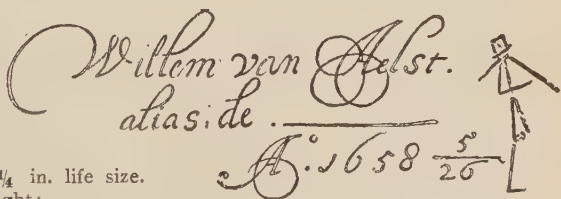 Willem van Aelst.
alias: de .
A°: 1658 5/26
1/4 in. life size.
ght: